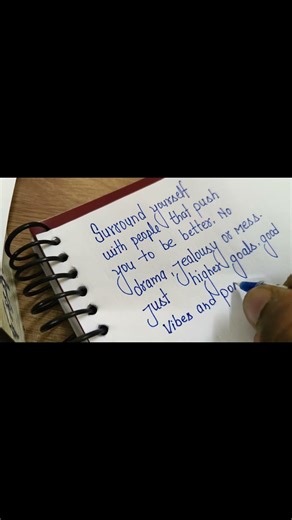 Surround yourself
with people that push
you to be better. No
drama. Jealousy or mess.
Just higher goals. good
Vibes and